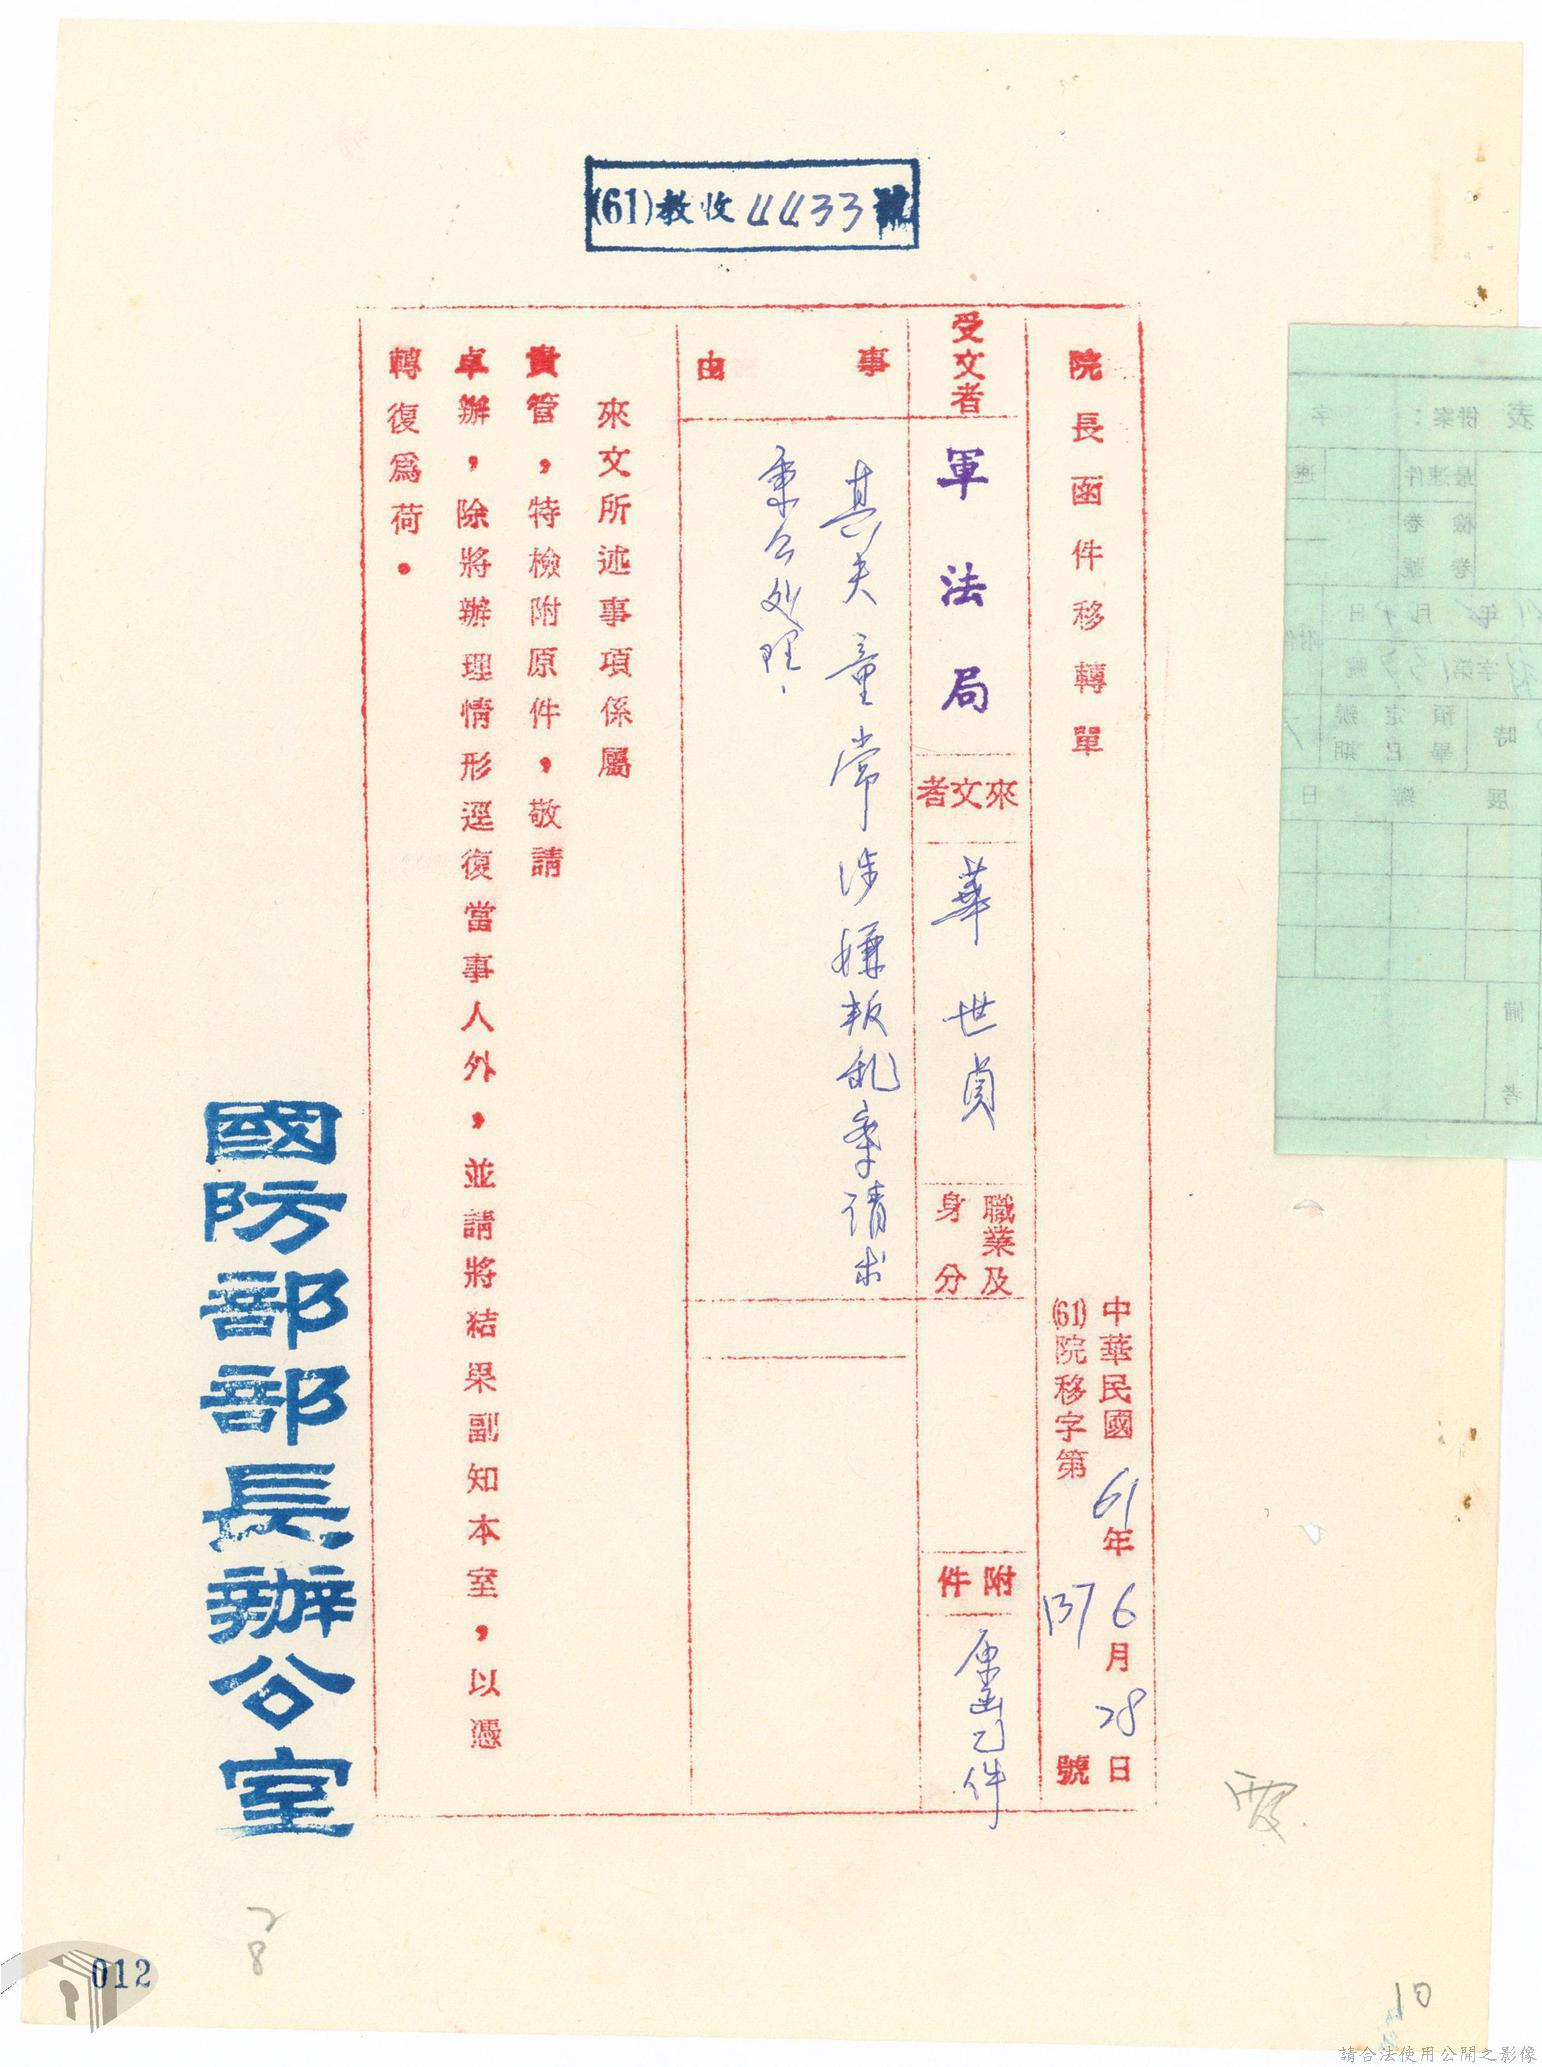 (61)教收4433號
院長函件移轉單
中華民國61年6月28日
(61)院移字第1377號
受文者
軍法局
來文者
華世貞
職業及
身分
附件
原函乙件
事由
其夫童常涉嫌叛乱案請求
秉公处理、
來文所述事項係屬
貴管，特檢附原件，敬請
卓辦，除將辦理情形逕復當事人外，並請將結果副知本室，以憑
轉復為荷。
國防部部長辦公室
012
8
10
請合法使用公開之影像